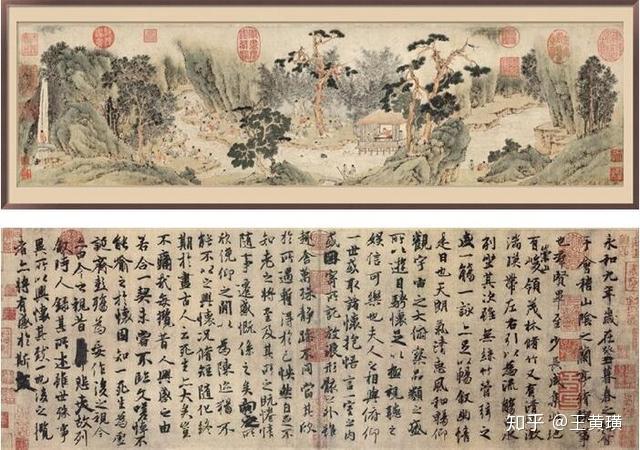 永和九年歲在癸丑暮春之初會
于會稽山陰之蘭亭脩稧事
也羣賢畢至少長咸集此地
有崇山峻領茂林脩竹又有清流激
湍暎帶左右引以為流觴曲水
列坐其次雖無絲竹管弦之
盛一觴一詠亦足以暢敘幽情
是日也天朗氣清惠風和暢仰
觀宇宙之大俯察品類之盛
所以遊目騁懷足以極視聽之
娛信可樂也夫人之相與俯仰
一世或取諸懷抱悟言一室之內
或因寄所託放浪形骸之外雖
趣舍萬殊靜躁不同當其欣
於所遇蹔得於己怏然自足不
知老之將至及其所之既惓情
隨事遷感慨係之矣向之所
欣俛仰之閒以為陳迹猶不
能不以之興懷況脩短隨化終
期於盡古人云死生亦大矣豈
不痛哉每攬昔人興感之由
若合一契未嘗不臨文嗟悼不
能喻之於懷固知一死生為虛
誕齊彭殤為妄作後之視今
亦由今之視昔悲夫故列
敘時人錄其所述雖世殊事
異所以興懷其致一也後之攬
者亦將有感於斯
知乎 @王黄璜